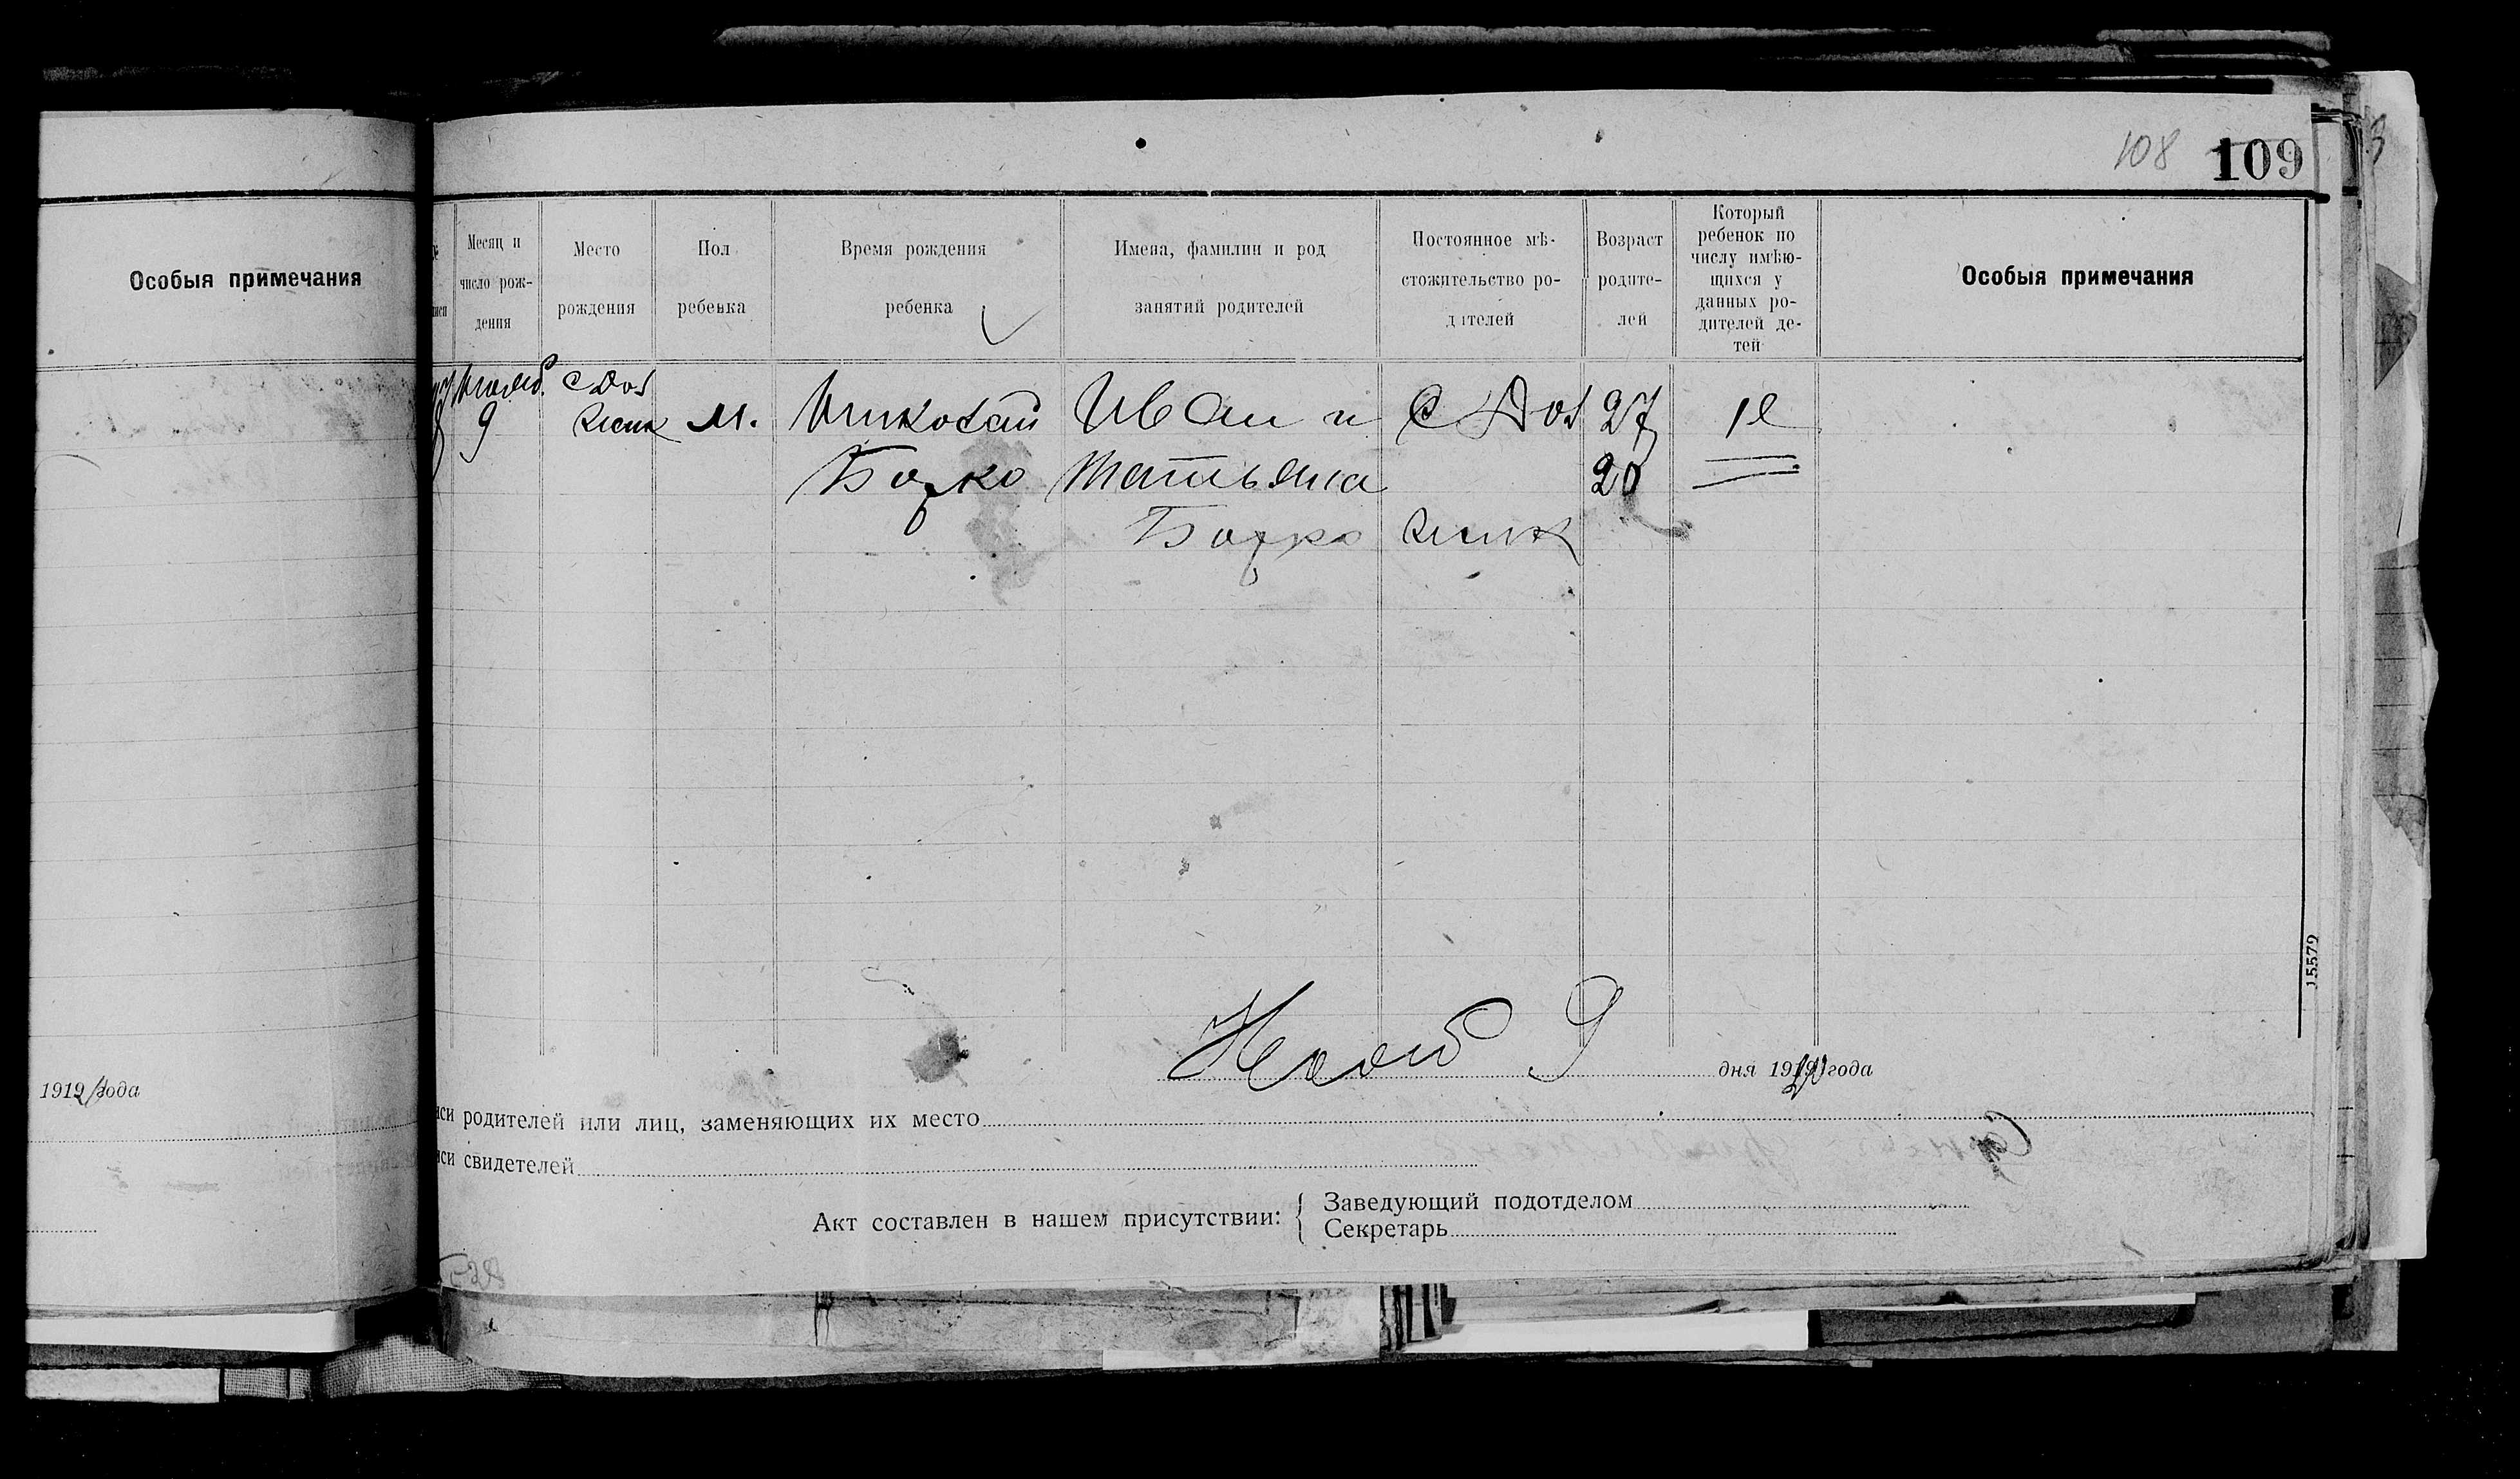 108 109
Особыя примечания
Месяц и число рож-дения
Место рождения
Пол ребенка
Время рождения ребенка
Имена, фамилии и род занятий родителей
Постоянное мѣ-стожительство ро-дителей
Возраст родите-лей
Который ребенок по числу имѣю-щихся у данных ро-дителей де-тей
Особыя примечания
9
с Дол
м.
Николай
Иван и
с Дол
27
1й
Божко
Татьяна
20
Божко
Нояб 9 дня 19 года
1919 года
родителей или лиц, заменяющих их место
свидетелей
Акт составлен в нашем присутствии:
Заведующий подотделом
Секретарь
15579